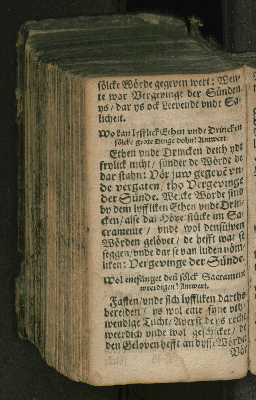 sölcke Wörde gegeven wert: Wen-
te wor Vergevinge der Sünden
ys / dar ys ock Levendt vnde Sa-
licheit.
Wo kan lyfflick Ethen vnde Drincken
sölcke grote Dinge dohn? Antwort.
Ethen vnde Drincken deith ydt
frylick nicht / sünder de Wörde de
dar stahn: Vör juw gegeve vn-
de vergaten / tho Vergevinge
der Sünde. Welcke Wörde sind
by dem lyffliken Ethen vnde Drin-
cken / alse dat Hövetstücke im Sa-
cramente / vnde wol densülven
Wörden gelövet / de hefft wat se
seggen / vnde dar se van luden
liken: Vergevinge der Sünde.
Wol entfanget denn sölck Sacrament
werdigen? Antwort.
Fasten / vnde sick lyffliken dartho
bereiden / ys wol eine fyne vth-
wendige Tucht / Averst de ys recht
weerdich vnde wol geschicket / de
den Geloven hefft an dysse Wörde
Vör